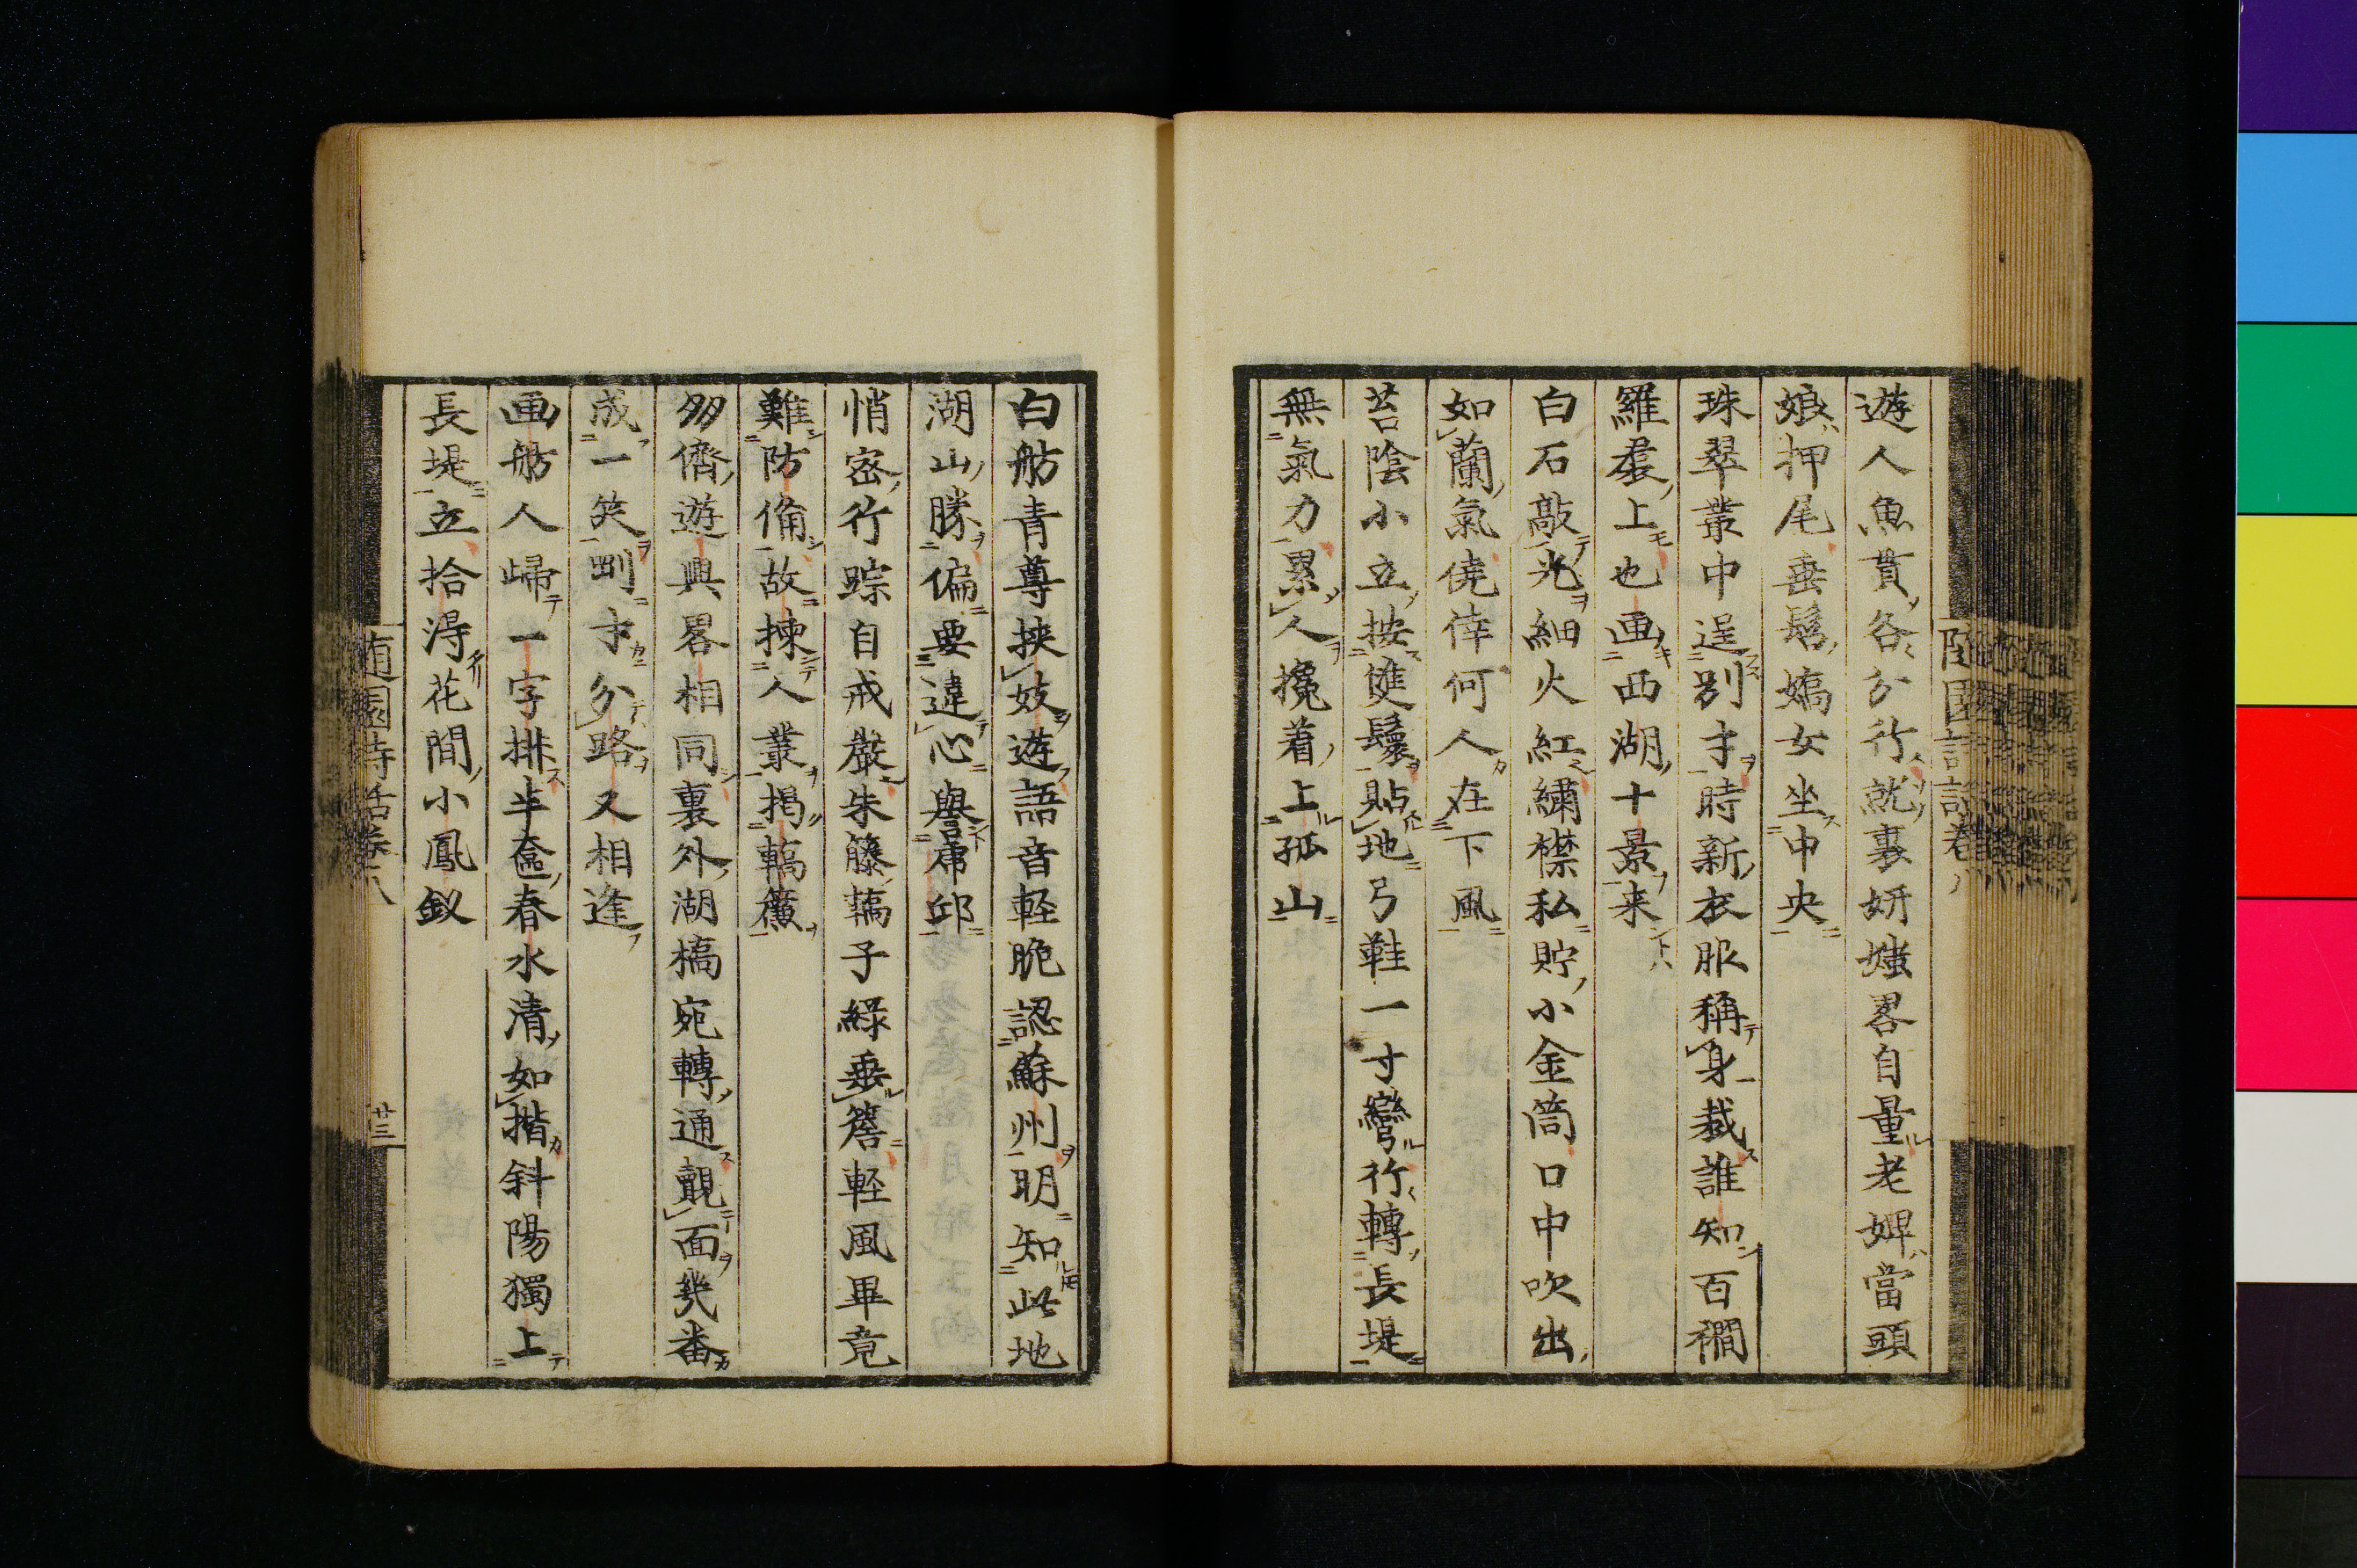 遊人魚貫各分行就裏妍媸畧自量老婢當頭
娘押尾垂髫嬌女坐中央
珠翠叢中逞別才時新衣服稱身裁誰知百襉
羅裙上也画西湖十景来
白石敲光細火紅繡襟私貯小金筒口中吹出
如蘭氣僥倖何人在下風
苔陰小立按雙鬟貼地弓鞋一寸彎行轉長堤
無氣力累人攙着上孤山
白舫青尊挾妓遊語音軽脆認蘇州明知此地
湖山勝偏要違心譽虎邱
悄密行踪自戒嚴朱藤轎子綠垂簷軽風畢竟
難防備故揀人叢揭轎簾
多儕遊興畧相同裏外湖橋宛轉通覿面幾番
成一笑剛才分路又相逢
画舫人歸一字排半奩春水清如揩斜陽獨上
長堤立拾得花間小鳳釵
随園詩話巻八
廿三